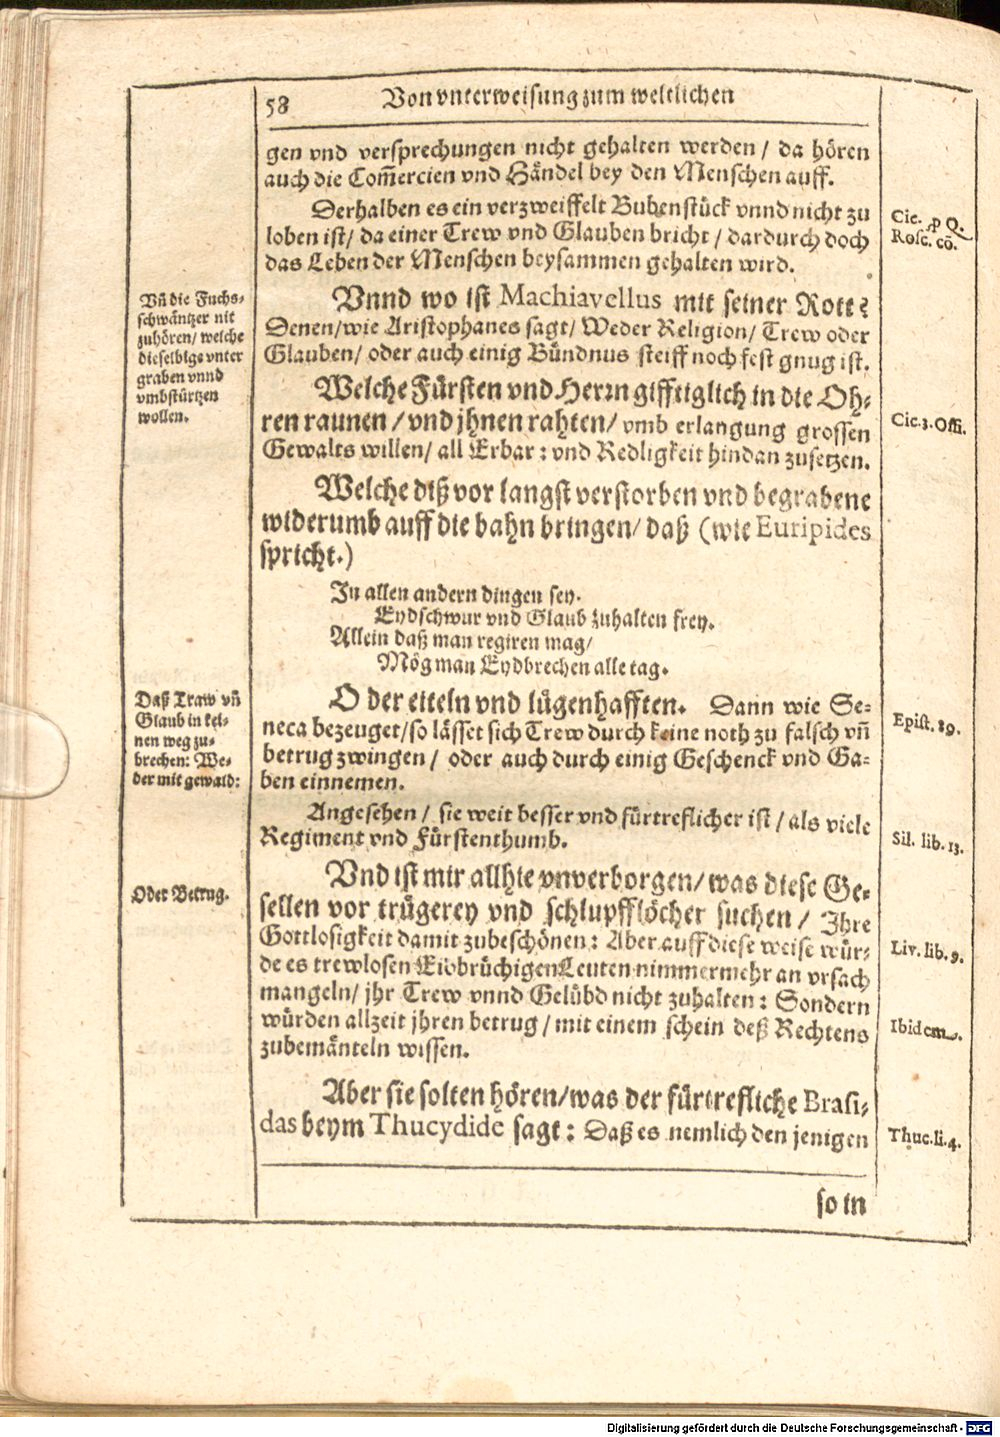 58 Von vnterweisung zum weltlichen
gen vnd versprechungen nicht gehalten werden / da hören
auch die Com̃ercien vnd Händel bey den Menschen auff.
Derhalben es ein verzweiffelt Bubenstück vnnd nicht zu
loben ist/ da einer Trew vnd Glauben bricht / dardurch doch
das Leben der Menschen beysammen gehalten wird.
Cic. p Q.
Rosc. cō.
Vnnd wo ist Machiavellus mit seiner Rotte?
Denen/wie Aristophanes sagt/ Weder Religion/ Trew oder
Glauben/ oder auch einig Bündnus steiff noch fest gnug ist.
Vn̄ die Fuchs-
schwäntzer nit
zuhören/ welche
dieselbige vnter
graben vnnd
vmbstürtzen
wollen.
Welche Fürsten vnd Herrn gifftiglich in die Oh-
ren raunen / vnd jhnen rahten/ vmb erlangung grossen
Gewalts willen/ all Erbar: vnd Redligkeit hindan zusetzen.
Cic.3.Offi.
Welche diß vor langst verstorben vnd begrabene
widerumb auff die bahn bringen/ daß (wie Euripides
spricht.)
In allen andern dingen sey.
Eydschwur vnd Glaub zuhalten frey.
Allein daß man regiren mag/
Mög man Eydbrechen alle tag.
O der eiteln vnd lügenhafften. Dann wie Se-
neca bezeuget/so lässet sich Trew durch keine noth zu falsch vn̄
betrug zwingen / oder auch durch einig Geschenck vnd Ga-
ben einnemen.
Daß Traw vn̄
Glaub in kei-
nen weg zu-
brechen: We-
der mit gewald:
Epist. 89.
Angesehen / sie weit besser vnd fürtreflicher ist / als viele
Regiment vnd Fürstenthumb.
Sil. lib. 13.
Vnd ist mir allhie vnverborgen/ was diese Ge-
sellen vor trügerey vnd schlupfflöcher suchen / Ihre
Gottlosigkeit damit zubeschönen: Aber auff diese weise wür-
de es trewlosen Eidbrüchigen Leuten nimmermehr an vrsach
mangeln/ jhr Trew vnnd Gelübd nicht zuhalten: Sondern
würden allzeit jhren betrug / mit einem schein deß Rechtens
zubemänteln wissen.
Oder Betrug.
Liv. lib. 9.
Ibidem.
Aber sie solten hören/was der fürtrefliche Brasi-
das beym Thucydide sagt: Daß es nemlich den jenigen
Thuc.li.4.
so in
Digitalisierung gefördert durch die Deutsche Forschungsgemeinschaft - DFG